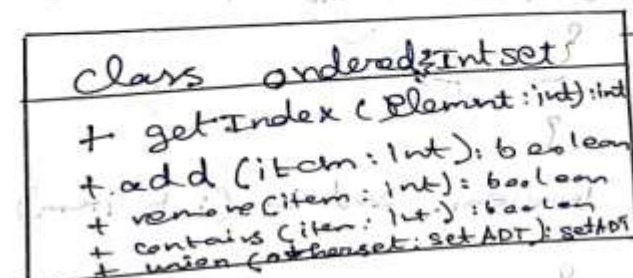 class orderedIntset
+ getIndex (Element : int) : int
+ add (item : Int) : boolean
+ remove (item : Int) : boolean
+ contains (item : Int) : boolean
+ union (otherset : set ADT) : setADT